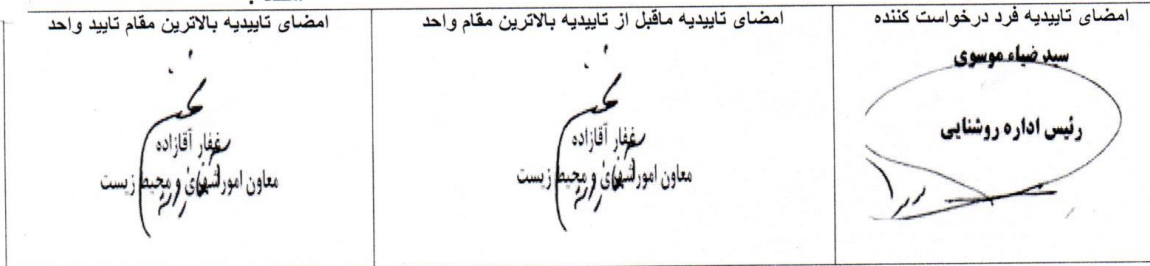 امضای تاییدیه فرد درخواست کننده
سید ضیاء موسوی
رئیس اداره روشنایی
امضای تاییدیه ماقبل از تاییدیه بالاترین مقام واحد
غفار آقازاده
معاون امور شهری و محیط زیست
امضای تاییدیه بالاترین مقام تایید واحد
غفار آقازاده
معاون امور شهری و محیط زیست